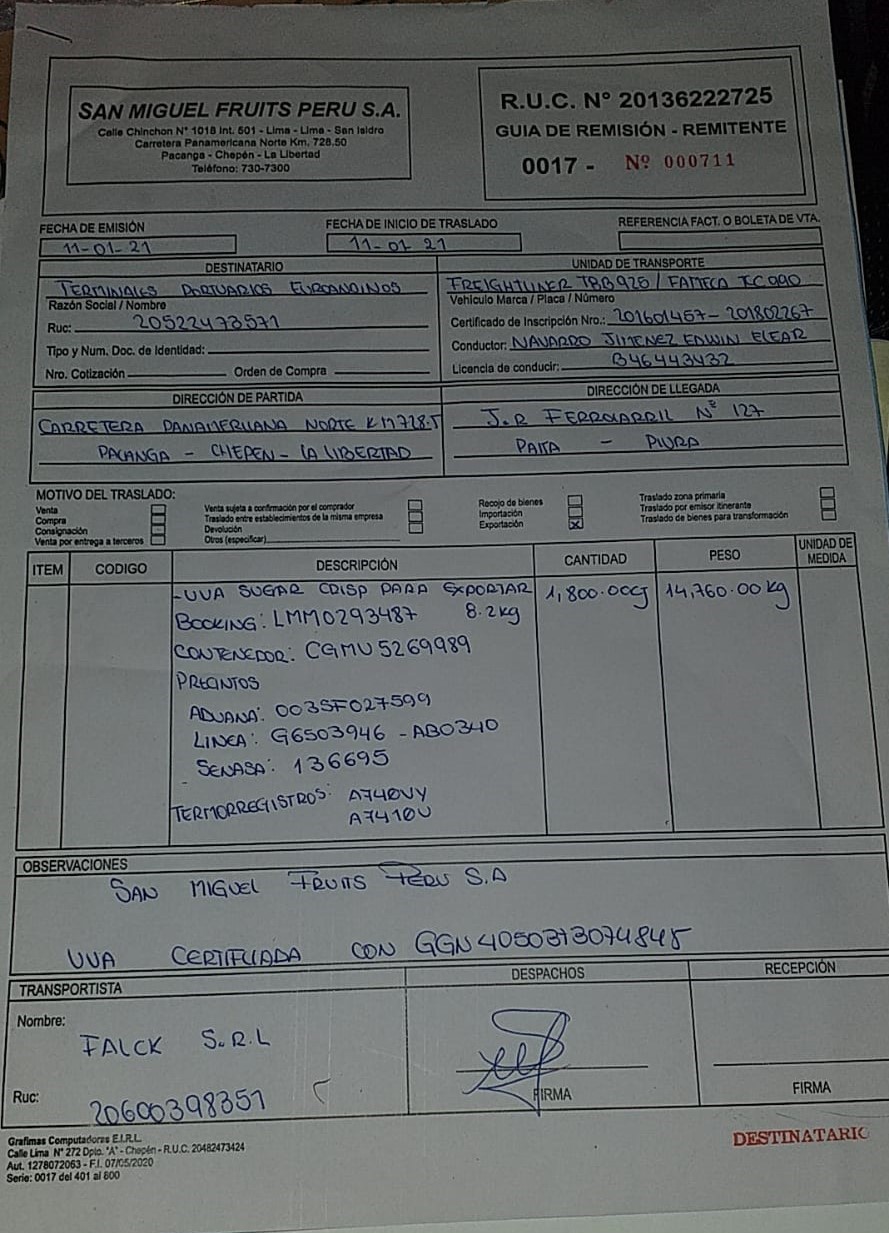 SAN MIGUEL FRUITS PERU S.A.
Calle Chinchon N° 1018 Int. 601 - Lima - Lima - San Isidro
Carretera Panamericana Norte Km. 728.50
Pacanga - Chepén - La Libertad
Teléfono: 730-7300
R.U.C. N° 20136222725
GUIA DE REMISIÓN - REMITENTE
0017 - Nº 000711
FECHA DE EMISIÓN
11-01-21
FECHA DE INICIO DE TRASLADO
11-01-21
REFERENCIA FACT. O BOLETA DE VTA.
DESTINATARIO
TERMINALES PORTUARIOS EUROANDINOS
Razón Social / Nombre
Ruc: 20522473571
Tipo y Num. Doc. de Identidad:
Nro. Cotización Orden de Compra
UNIDAD DE TRANSPORTE
FREIGHTLINER TBB926 / FAMECA TCO90
Vehículo Marca / Placa / Número
Certificado de Inscripción Nro.: 201601457-201802267
Conductor: NAVARRO JIMENEZ EDWIN ELEAR
Licencia de conducir: B46443432
DIRECCIÓN DE PARTIDA
CARRETERA PANAMERICANA NORTE KM728.5
PACANGA - CHEPEN - LA LIBERTAD
DIRECCIÓN DE LLEGADA
J.R FERROCARRIL Nº 127
PAITA - PIURA
MOTIVO DEL TRASLADO:
Venta
Compra
Consignación
Venta por entrega a terceros
Venta sujeta a confirmación por el comprador
Traslado entre establecimientos de la misma empresa
Devolución
Otros (especificar)
Recojo de bienes
Importación
Exportación X
Traslado zona primaria
Traslado por emisor itinerante
Traslado de bienes para transformación
ITEM CODIGO DESCRIPCIÓN CANTIDAD PESO UNIDAD DE MEDIDA
-UVA SUGAR CRISP PARA EXPORTAR 1,800.00CJ 14,760.00 kg
BOOKING: LMM0293487 8.2kg
CONTENEDOR: CGMU 5269989
PRECINTOS
ADUANA: 003SF027599
LINEA: G6503946 - AB0340
SENASA: 136695
TERMORREGISTROS: A740VY
A7410U
OBSERVACIONES
SAN MIGUEL FRUITS PERU S.A
UVA CERTIFICADA CON GGN 4050373074845
TRANSPORTISTA
Nombre:
FALCK S.R.L
Ruc: 20600398351
DESPACHOS
FIRMA
RECEPCIÓN
FIRMA
Grafimas Computadoras E.I.R.L.
Calle Lima N° 272 Dpto. "A" - Chepén - R.U.C. 20482473424
Aut. 1278072063 - F.I. 07/05/2020
Serie: 0017 del 401 al 800
DESTINATARIO